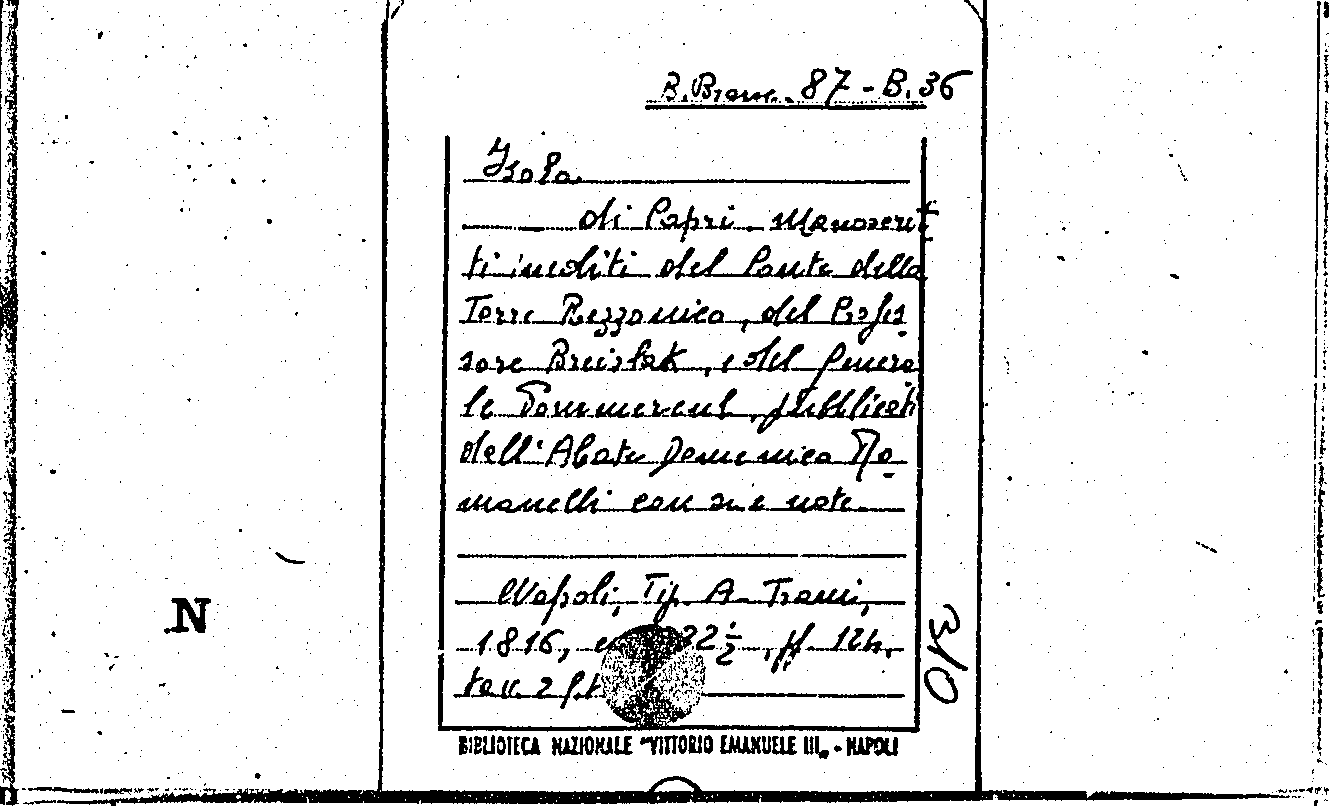 B. Branc. 87 - B. 36
Isola
di Capri. Manoscrit
ti inediti del Conte della
Torre Rezzonico, del Profes
sore Breislak, e del genera
le Pommereul, pubblicati
dall'Abate Domenico Ro
manelli con sue note
Napoli, Tip. A. Trani,
1816, 22 1/2, pp. 124,
tav. 2 f.t.
310
N
BIBLIOTECA NAZIONALE "VITTORIO EMANUELE III„ - NAPOLI